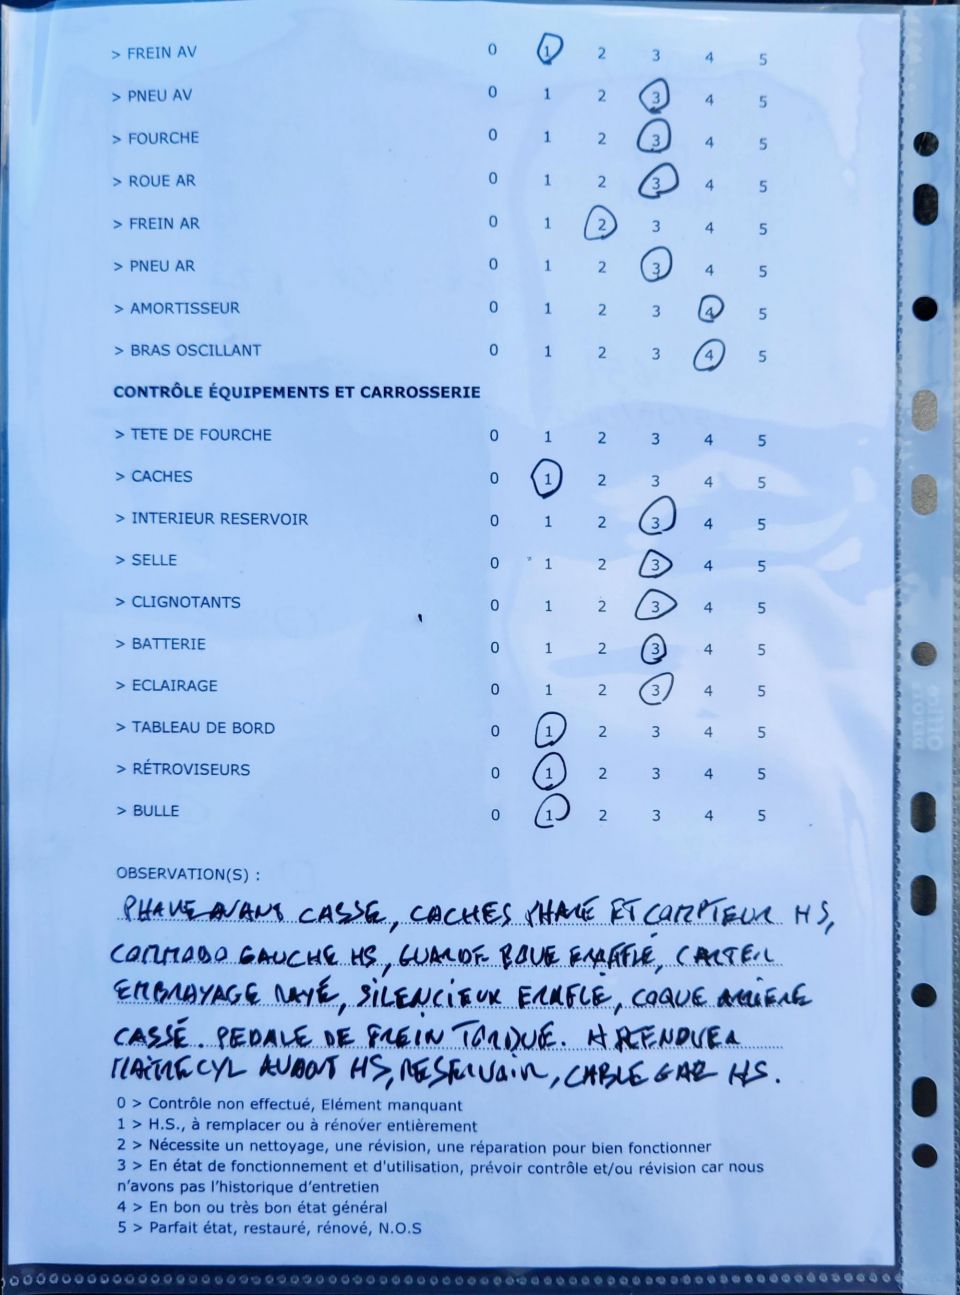 > FREIN AV 0 1 2 3 4 5
> PNEU AV 0 1 2 3 4 5
> FOURCHE 0 1 2 3 4 5
> ROUE AR 0 1 2 3 4 5
> FREIN AR 0 1 2 3 4 5
> PNEU AR 0 1 2 3 4 5
> AMORTISSEUR 0 1 2 3 4 5
> BRAS OSCILLANT 0 1 2 3 4 5
CONTRÔLE ÉQUIPEMENTS ET CARROSSERIE
> TETE DE FOURCHE 0 1 2 3 4 5
> CACHES 0 1 2 3 4 5
> INTERIEUR RESERVOIR 0 1 2 3 4 5
> SELLE 0 1 2 3 4 5
> CLIGNOTANTS 0 1 2 3 4 5
> BATTERIE 0 1 2 3 4 5
> ECLAIRAGE 0 1 2 3 4 5
> TABLEAU DE BORD 0 1 2 3 4 5
> RÉTROVISEURS 0 1 2 3 4 5
> BULLE 0 1 2 3 4 5
OBSERVATION(S) :
PHARE AVANT CASSE, CACHES PHARE ET COMPTEUR HS,
COMMODO GAUCHE HS, GUARDE BOUE ERAFFLÉ, CARTER
EMBRAYAGE RAYÉ, SILENCIEUX ERAFLE, COQUE ARRIÈRE
CASSÉ. PEDALE DE FREIN TORDUE.
MAITRE CYL AVANT HS, RESERVOIR, CABLE GAZ HS.
0 > Contrôle non effectué, Elément manquant
1 > H.S., à remplacer ou à rénover entièrement
2 > Nécessite un nettoyage, une révision, une réparation pour bien fonctionner
3 > En état de fonctionnement et d'utilisation, prévoir contrôle et/ou révision car nous
n'avons pas l'historique d'entretien
4 > En bon ou très bon état général
5 > Parfait état, restauré, rénové, N.O.S